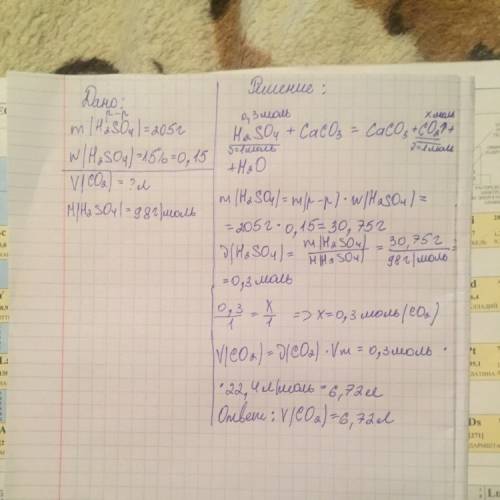 Дано:
р-р
m(H₂SO₄)=205г
w(H₂SO₄)=15%=0,15
V(CO₂)=?л
M(H₂SO₄)=98г/моль
Решение:
0,3моль х моль
H₂SO₄ + CaCO₃ = CaCO₃ + CO₂↑ +
=1моль =1моль
+H₂O
m(H₂SO₄)=m(р-р)·w(H₂SO₄)=
=205г·0,15=30,75г
ν(H₂SO₄)=m(H₂SO₄)/M(H₂SO₄)=30,75г/98г/моль=
=0,3моль
0,3/1=x/1 => x=0,3моль(CO₂)
V(CO₂)=ν(CO₂)·Vm=0,3моль·
·22,4л/моль=6,72л
Ответ: V(CO₂)=6,72л
Pt
Ds
[271]